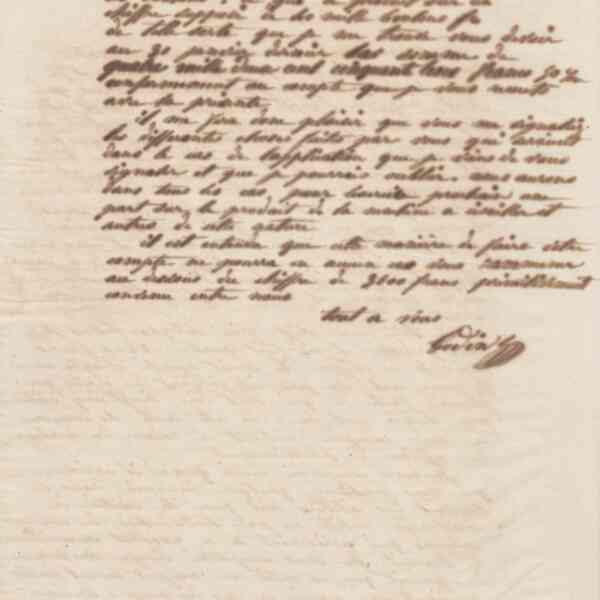 chiffre supposé à 60 mille bouton
de telle sorte que je me trouve vous devoir
au 30 janvier dernier la somme de
quatre mille deux cent cinquante trois francs 50 c
conformément au compte que je vous remets
avec la présente
il me fera bien plaisir que vous me signaliez
les différentes choses faites par vous qui seraient
dans le cas de l'application que je viens de vous
signaler et que je pourrais oublier. nous aurons
dans tous les cas, pour l'année prochaine une
part sur le produit de la matière à
autres de cette nature
il est entendu que cette manière de faire votre
compte ne pourra en aucun cas vous ramener
au dessous du chiffre de 3600 francs primitivement
convenu entre nous
tout à vous
Godin